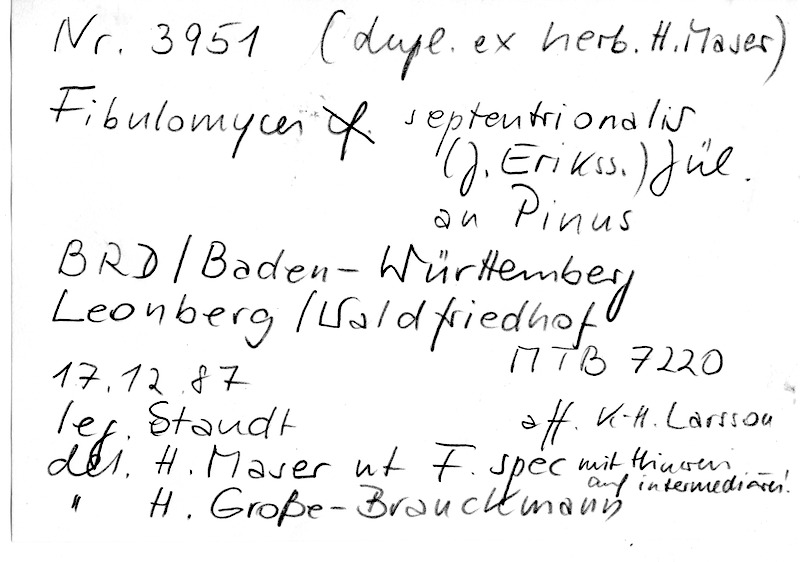 Nr. 3951 (dupl. ex herb. H. Maser)
Fibulomyces cf. septentrionalis
(J. Erikss.) Jül.
an Pinus
BRD / Baden-Württemberg
Leonberg / Waldfriedhof
MTB 7220
17.12.87
leg. Staudt
aff. K-H. Larsson
det. H. Maser ut F. spec mit Hinweis
auf intermediären!
" H. Große-Brauckmann